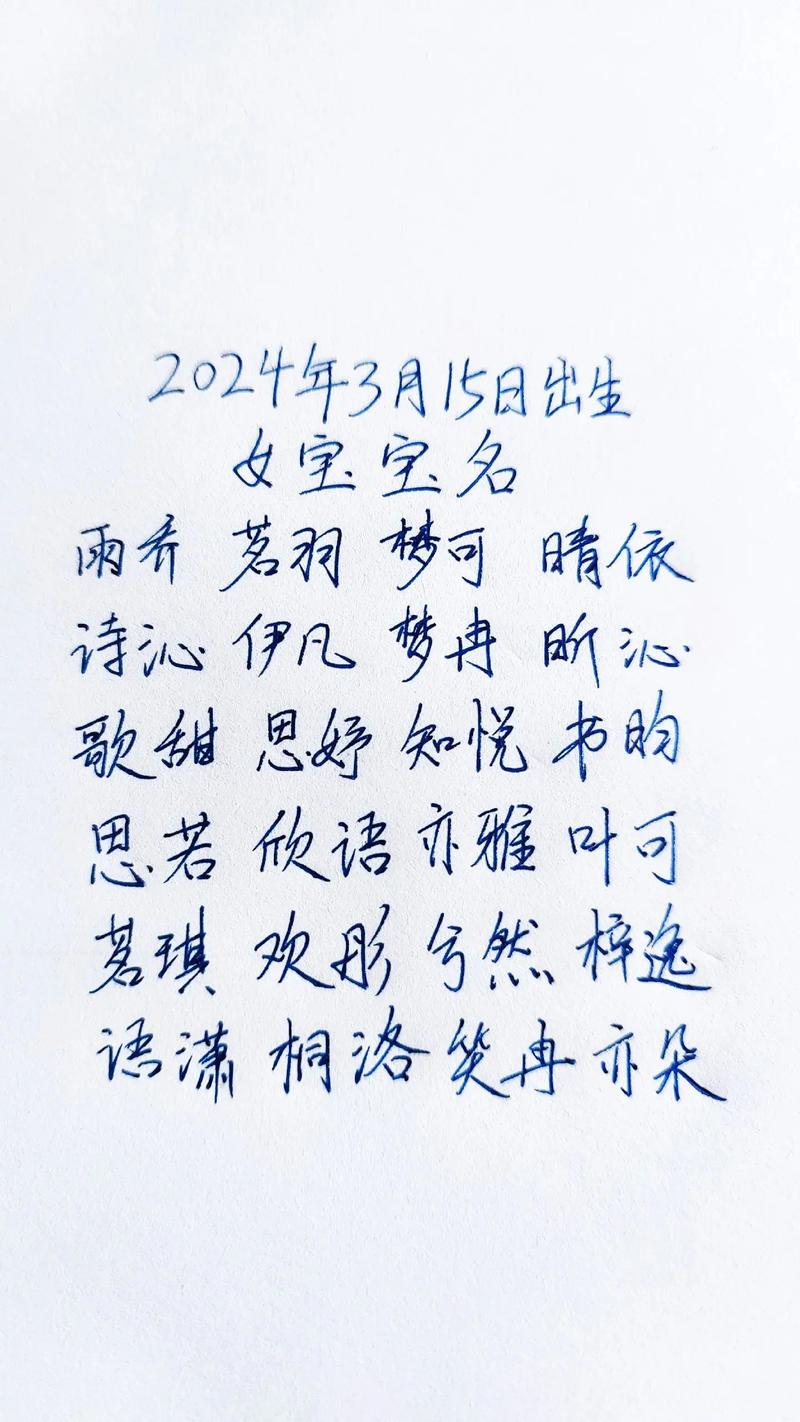 2024年3月15日出生
女宝宝名
雨乔 茗羽 梦可 晴依
诗沁 伊凡 梦冉 昕沁
歌甜 思妤 知悦 书昀
思若 欣语 亦雅 叶可
茗琪 欢彤 兮然 梓逸
语潇 桐洛 笑冉 亦朵